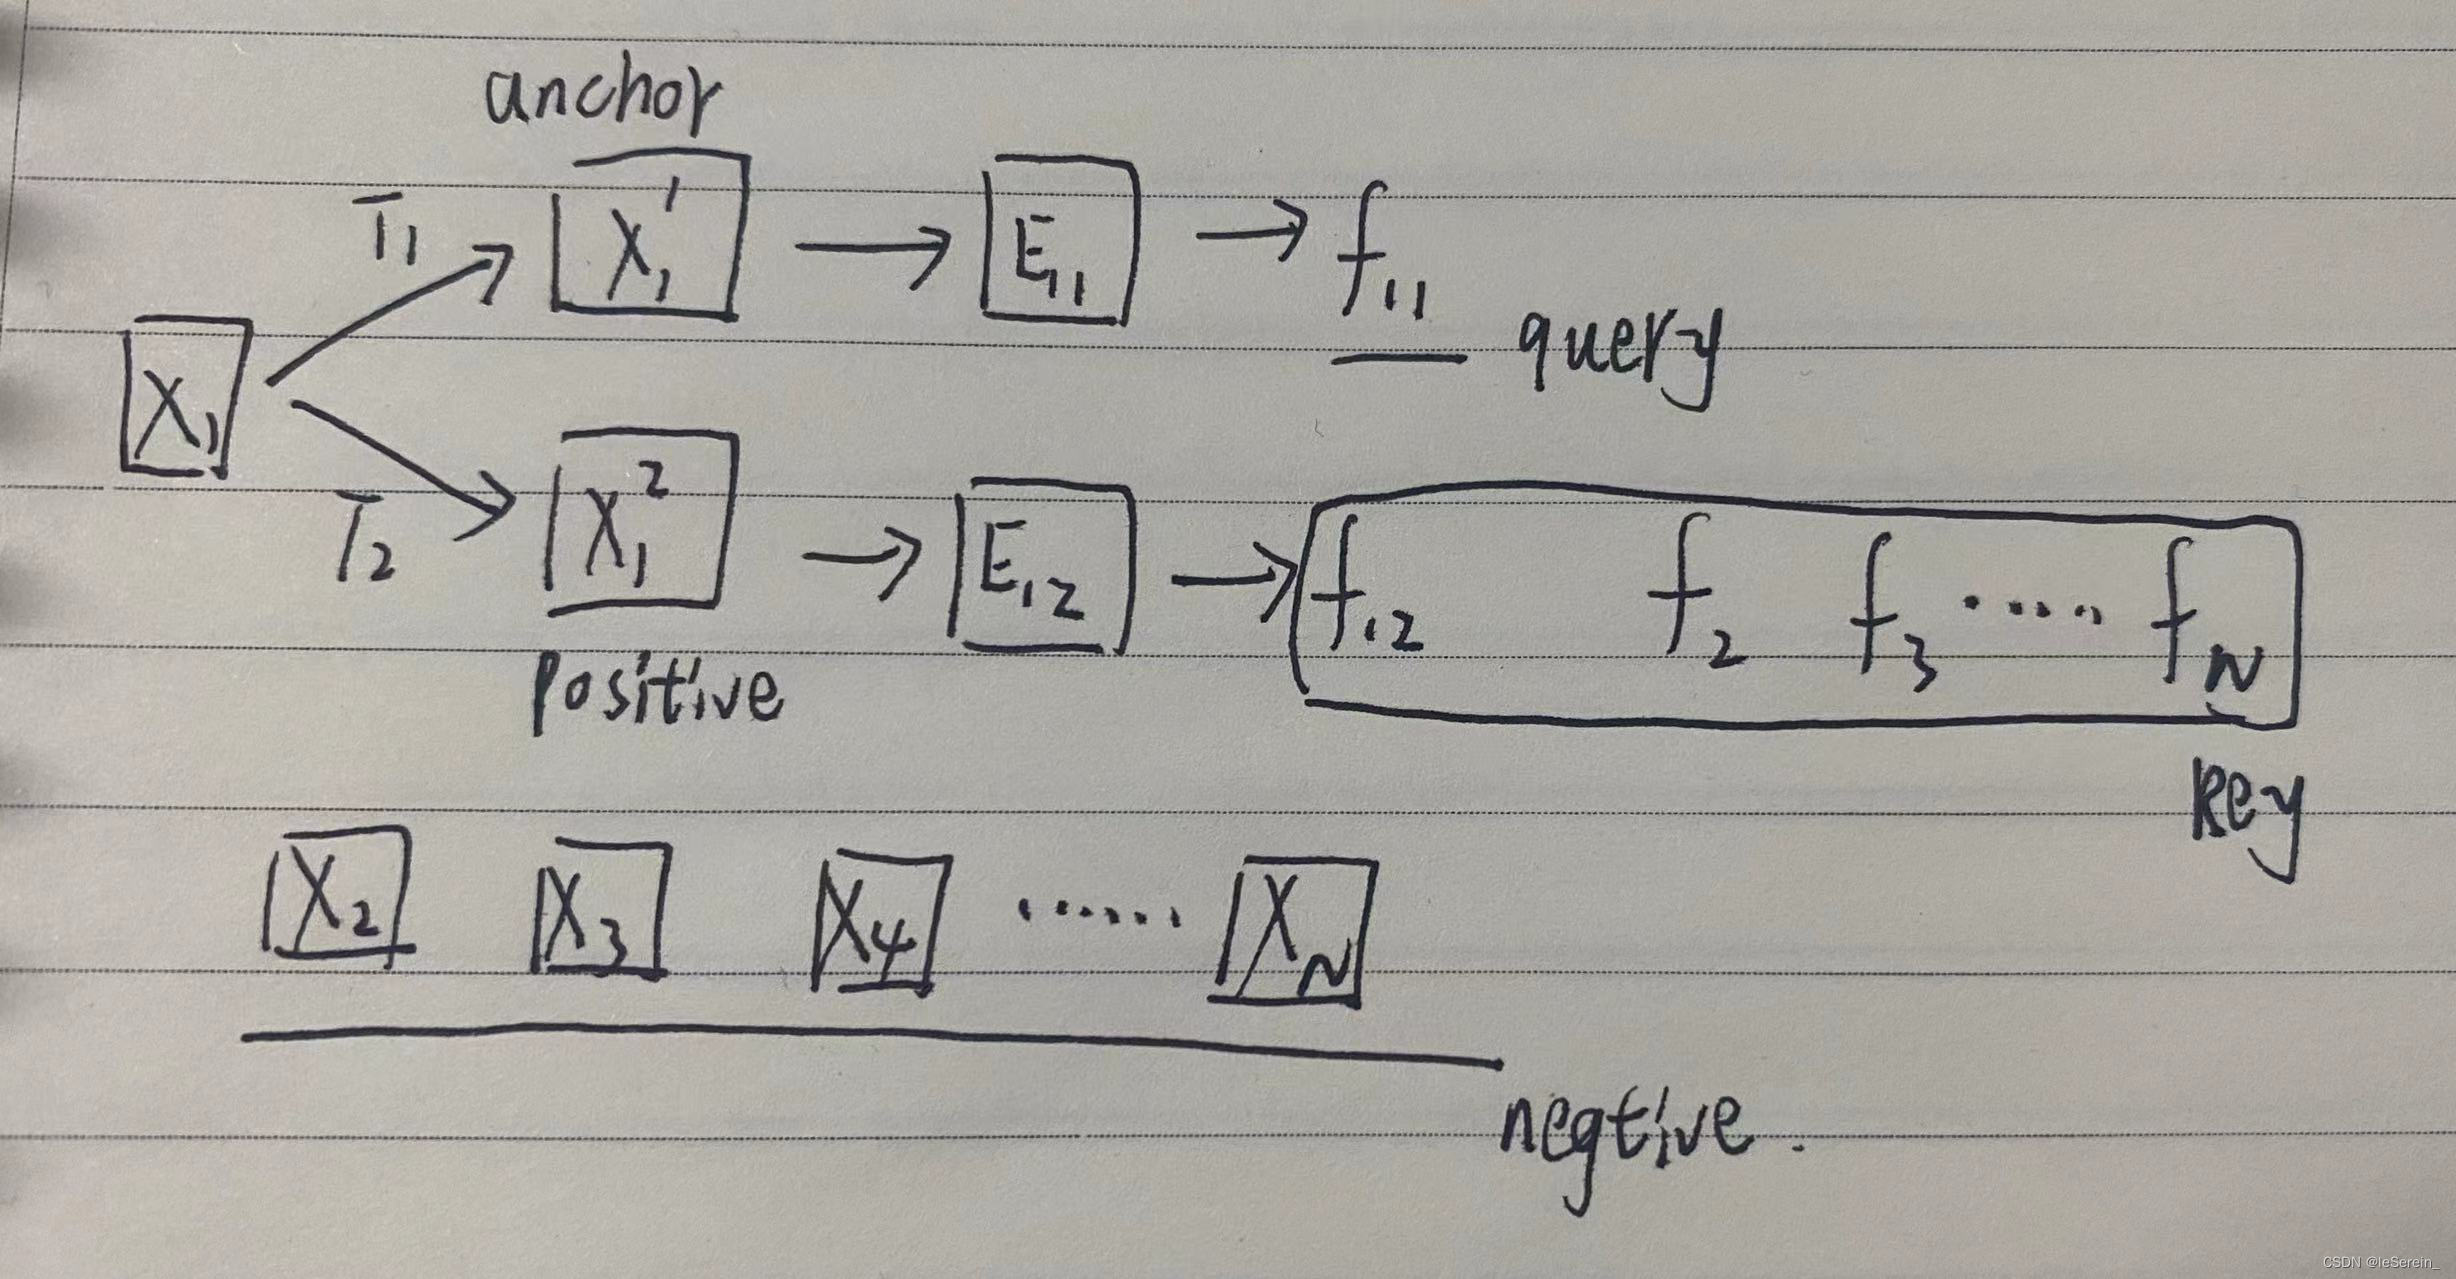 anchor
T₁ X₁¹ → E₁₁ → f₁₁
query
X₁
T₂ X₁² → E₁₂ → f₁₂ f₂ f₃ ..... f_N
positive
key
X₂ X₃ X₄ ...... X_N
negtive.
CSDN @leSerein_